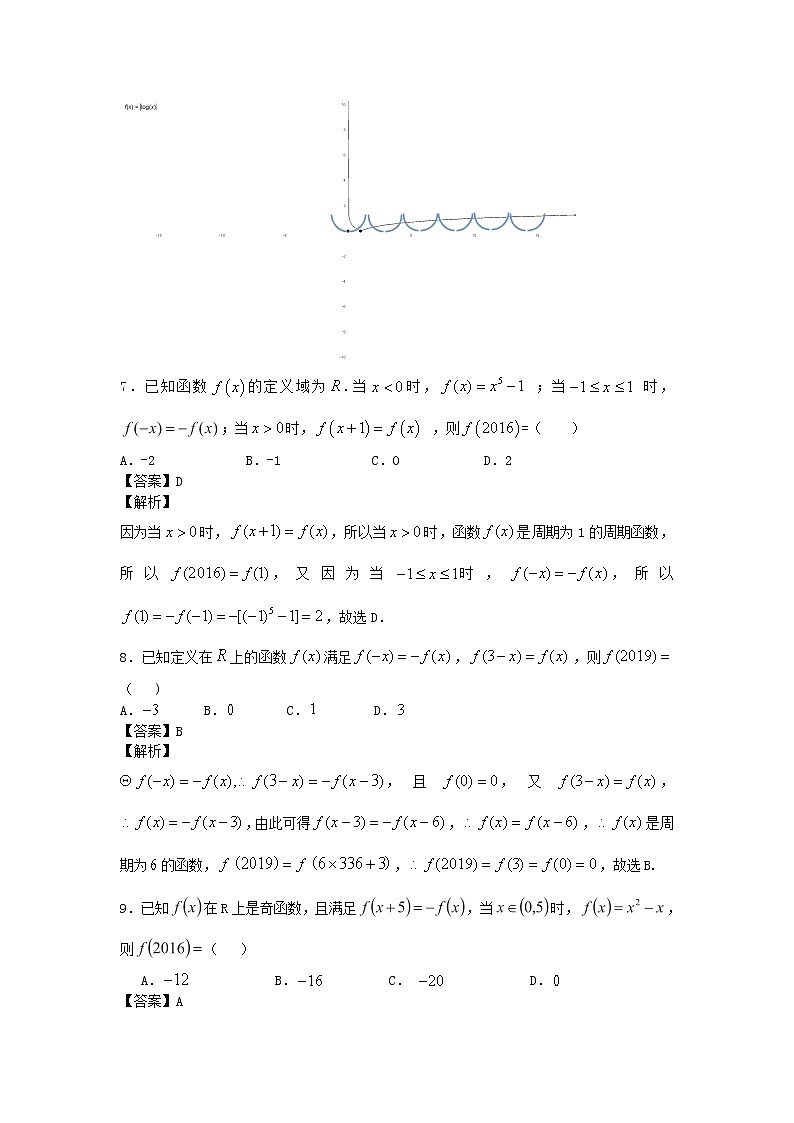 f(x) = |log(x)|
10
8
6
4
2
-15 -10 -5 5 10 15
-2
-4
-6
-8
-10
7.已知函数 f(x)的定义域为 R.当 x<0时, f(x)=x⁵−1 ;当−1≤x≤1 时,
f(−x)=−f(x);当x>0时, f(x+1)=f(x) ,则f(2016)=( )
A.-2 B.-1 C.0 D.2
【答案】D
【解析】
因为当x>0时, f(x+1)=f(x),所以当x>0时,函数f(x)是周期为1的周期函数,
所以 f(2016)=f(1),又因为当 −1≤x≤1时, f(−x)=−f(x),所以
f(1)=−f(−1)=−[(−1)⁵−1]=2,故选D.
8.已知定义在R上的函数f(x)满足f(−x)=−f(x),f(3−x)=f(x),则f(2019)=
( )
A.−3 B.0 C.1 D.3
【答案】B
【解析】
Θ f(−x)=−f(x),∴ f(3−x)=−f(x−3),且 f(0)=0,又 f(3−x)=f(x),
∴ f(x)=−f(x−3),由此可得f(x−3)=−f(x−6),∴ f(x)=f(x−6),∴ f(x)是周
期为6的函数, f (2019)=f (6×336+3),∴ f(2019)=f(3)=f(0)=0,故选B.
9.已知f(x)在R上是奇函数,且满足f(x+5)=−f(x),当x∈(0,5)时, f(x)=x²−x,
则f(2016)=( )
A.−12 B.−16 C. −20 D.0
【答案】A